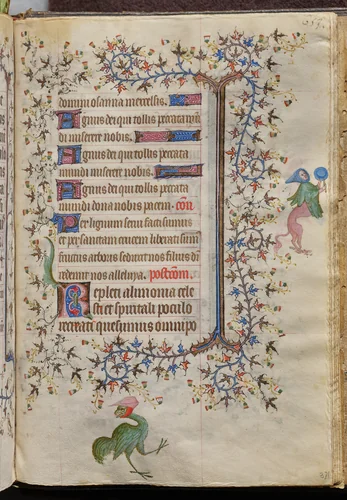 domini osanna in excelsis.
Agnus dei qui tollis peccata mun
di miserere nobis.
Agnus dei qui tollis peccata
mundi miserere nobis.
Agnus dei qui tollis peccata
mundi dona nobis pacem. com
Per lignum servi facti sumus
et per sanctam crucem liberati sum
fructus arboris seduxit nos filius di
redemit nos alleluya. postcom.
Repleti alimonia cele
sti et spirituali poculo
recreati quesumus omnipo